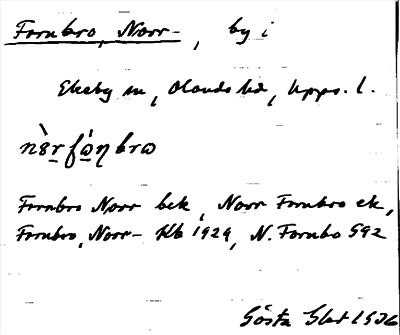 Fornbro, Norr-, by i
Ekeby sn, Olands hd, Upps. l.
Fornbro Norr bek, Norr Fornbro ek,
Fornbro, Norr- Kb 1929, N. Fornbo 592
Gösta 1936